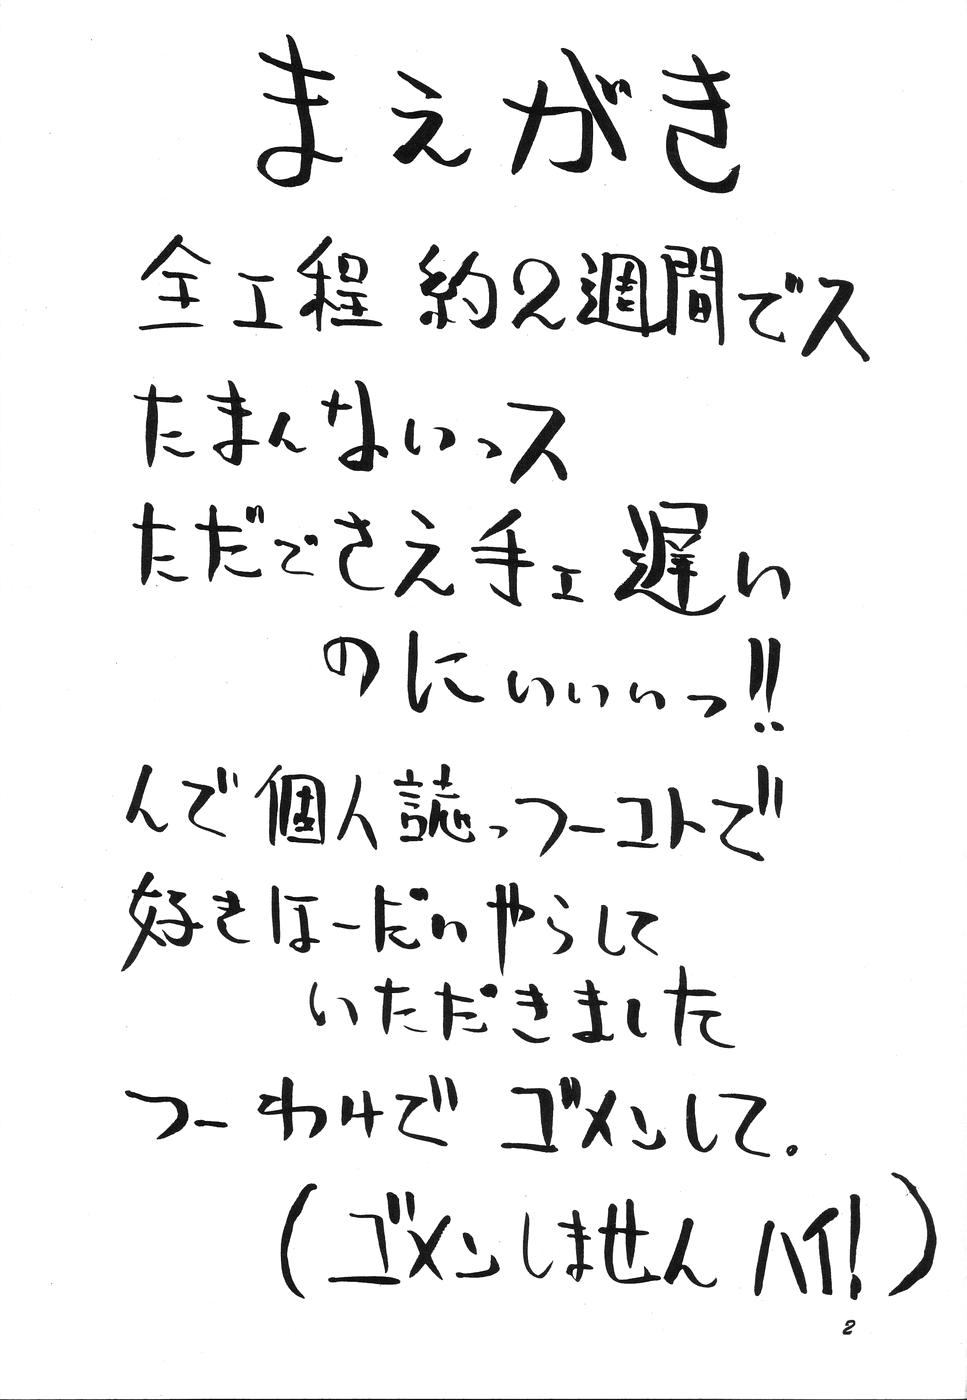 まえがき
全工程 約2週間でス
たまんないっス
ただでさえ手ェ遅い
のにぃぃぃっ!!
んで個人誌っつーコトで
好きほーだいやらして
いただきました
つーわけで ゴメンして。
(ゴメンしません ハイ!)
2